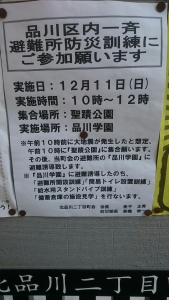 品川区内一斉
避難所防災訓練に
ご参加願います
実施日：12月11日(日)
実施時間：10時～12時
集合場所：聖蹟公園
実施場所：品川学園
※午前10時前に大地震が発生したと想定、
午前10時に「聖蹟公園」に集合願います。
その後、当町会の避難所の「品川学園」に
避難誘導致します。
※「品川学園」に避難誘導したのち、
「避難所開設訓練」「簡易トイレ設置訓練」
「給水用スタンドパイプ訓練」
「備蓄倉庫の施設見学」を行ないます。
北品川二丁目町会 会長
北品川二丁目